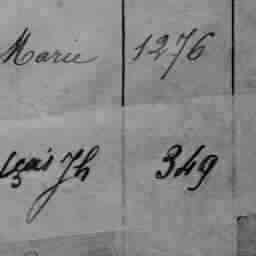 Marie 1276
çois Jh 349